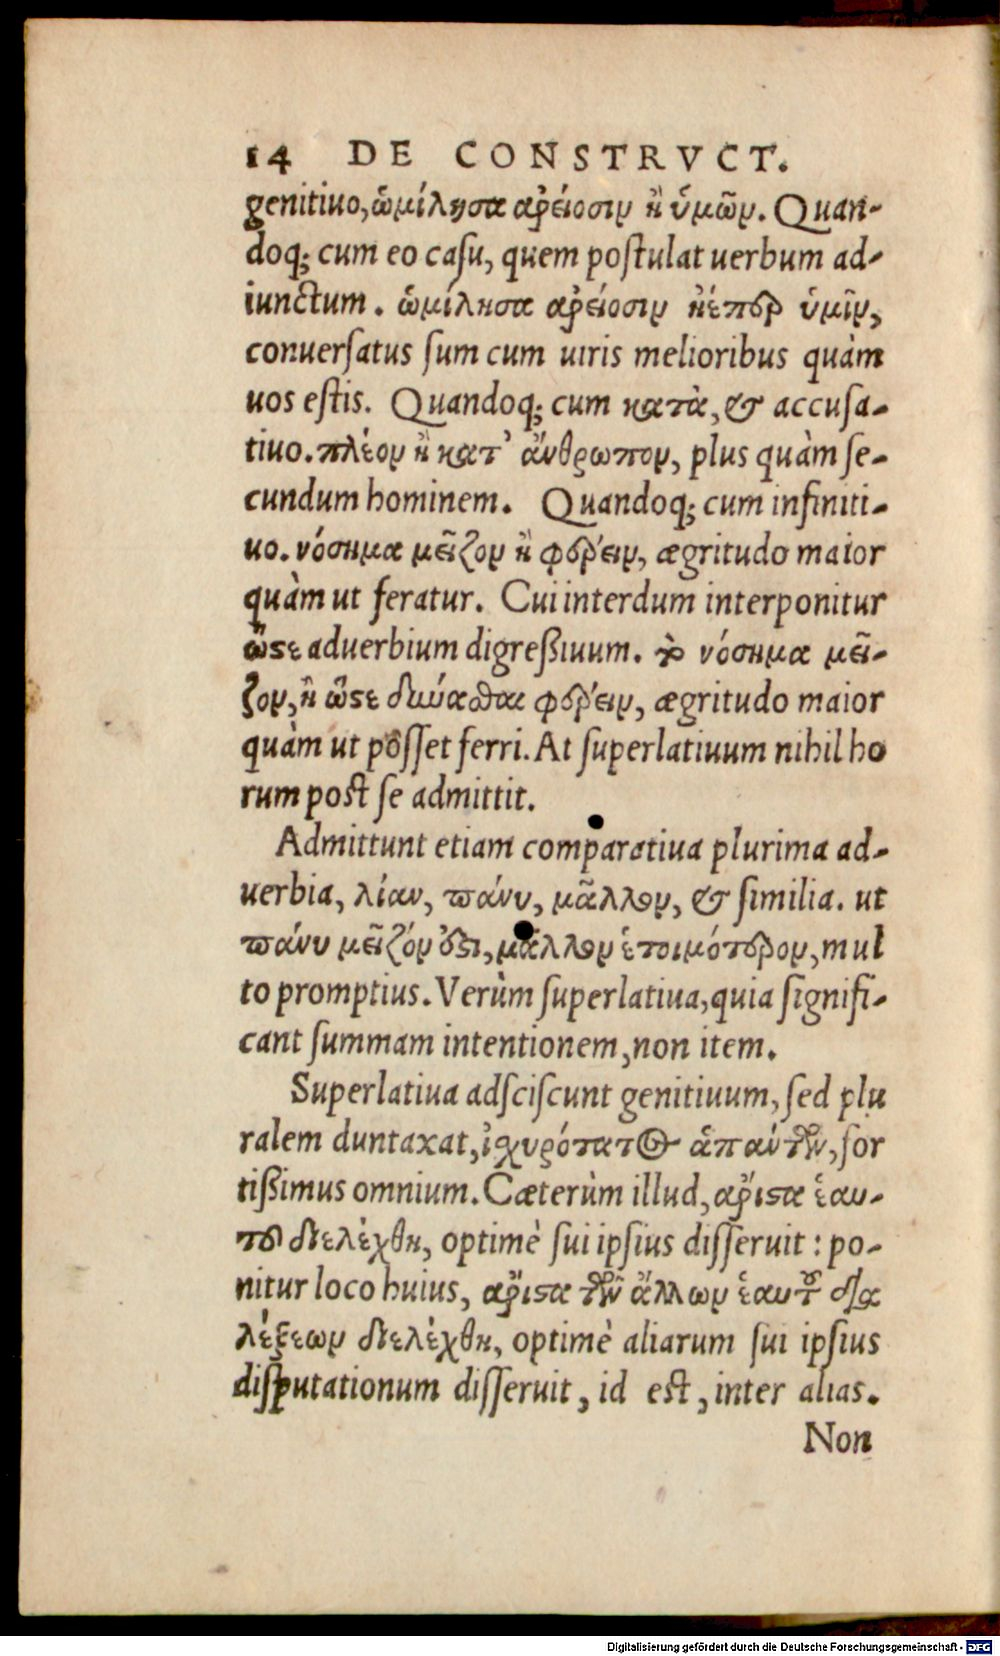 14 DE CONSTRVCT.
genitiuo, ὡμίλησα ἀρείοσιν ἢ ὑμῶν. Quan-
doq; cum eo casu, quem postulat uerbum ad-
iunctum. ὡμίλησα ἀρείοσιν ἠέπερ ὑμῖν,
conuersatus sum cum uiris melioribus quàm
uos estis. Quandoq; cum κατὰ, & accusa-
tiuo. πλέον ἢ κατ' ἄνθρωπον, plus quàm se-
cundum hominem. Quandoq; cum infiniti-
uo. νόσημα μεῖζον ἢ φέρειν, ægritudo maior
quàm ut feratur. Cui interdum interponitur
ὥστε aduerbium digreßiuum. νόσημα μεῖ-
ζον, ἢ ὥστε δύνασθαι φέρειν, ægritudo maior
quàm ut posset ferri. At superlatiuum nihil ho
rum post se admittit.
Admittunt etiam comparatiua plurima ad-
uerbia, λίαν, πάνυ, μᾶλλον, & similia. ut
πάνυ μεῖζόν ἐστι, μᾶλλον ἑτοιμότερον, mul
to promptius. Verùm superlatiua, quia signifi-
cant summam intentionem, non item.
Superlatiua adsciscunt genitiuum, sed plu
ralem duntaxat, ἰχυρότατος ἁπάντων, for
tißimus omnium. Cæterùm illud, ἄριστα ἑαυ-
τοῦ διελέχθη, optimè sui ipsius disseruit: po-
nitur loco huius, ἄριστα τῶν ἄλλων ἑαυτοῦ δια
λέξεων διελέχθη, optimè aliarum sui ipsius
disputationum disseruit, id est, inter alias.
Non
Digitalisierung gefördert durch die Deutsche Forschungsgemeinschaft - DFG